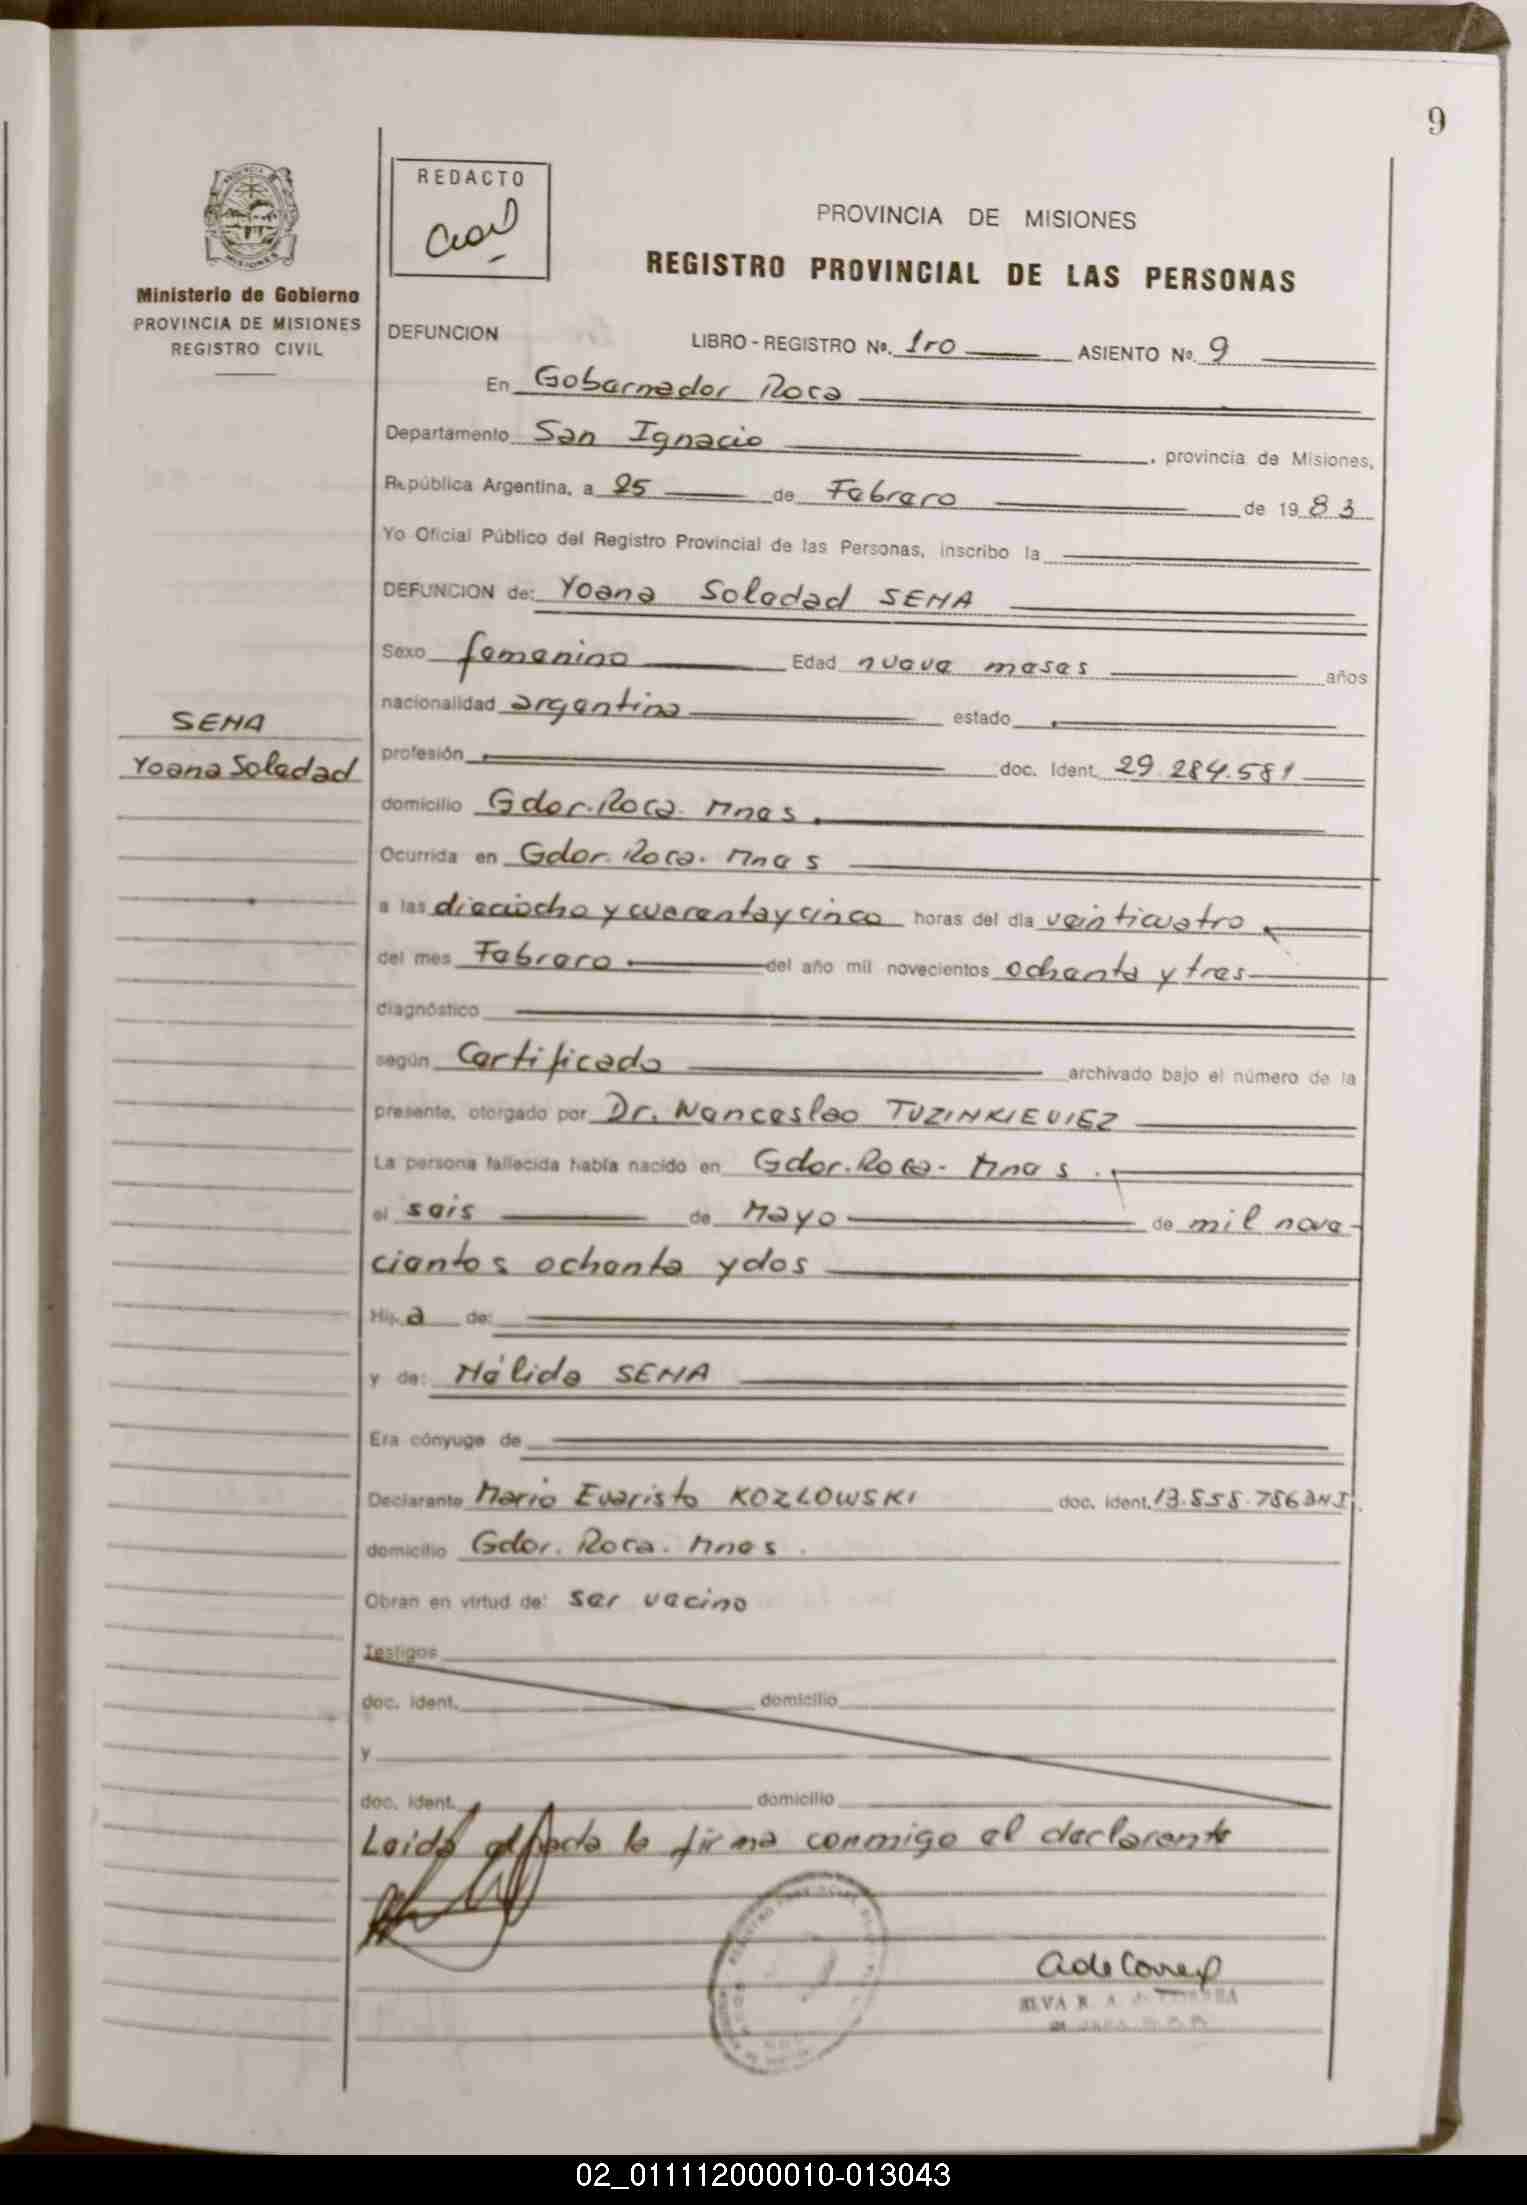 9
REDACTO
PROVINCIA DE MISIONES
REGISTRO PROVINCIAL DE LAS PERSONAS
MISIONES
Ministerio de Gobierno
PROVINCIA DE MISIONES
REGISTRO CIVIL
DEFUNCION LIBRO - REGISTRO No. 1ro ASIENTO No. 9
En Gobernador Roca
Departamento San Ignacio , provincia de Misiones,
República Argentina, a 25 de Febrero de 1983
Yo Oficial Público del Registro Provincial de las Personas, inscribo la
DEFUNCION de: Yoana Soledad SENA
Sexo femenino Edad nueve meses años
nacionalidad argentina estado
SENA
Yoana Soledad
profesión doc. Ident. 29.284.581
domicilio Gdor. Roca. Mnes.
Ocurrida en Gdor. Roca. Mnes
a las dieciocho y cuarenta y cinco horas del día veinticuatro
del mes Febrero del año mil novecientos ochenta y tres
diagnóstico
según Certificado archivado bajo el número de la
presente, otorgado por Dr. Wenceslao TUZINKIEVIEZ
La persona fallecida había nacido en Gdor. Roca - Mnes.
el seis de Mayo de mil nove-
cientos ochenta y dos
Hij. a de:
y de: Nélida SENA
Era cónyuge de
Declarante Mario Evaristo KOZLOWSKI doc. ident. 13.858.786 DNI.
domicilio Gdor. Roca. Mnes.
Obran en virtud de: ser vecino
Testigos
doc. ident. domicilio
y
doc. ident. domicilio
Leida el acta la firma conmigo el declarante
02_011112000010-013043